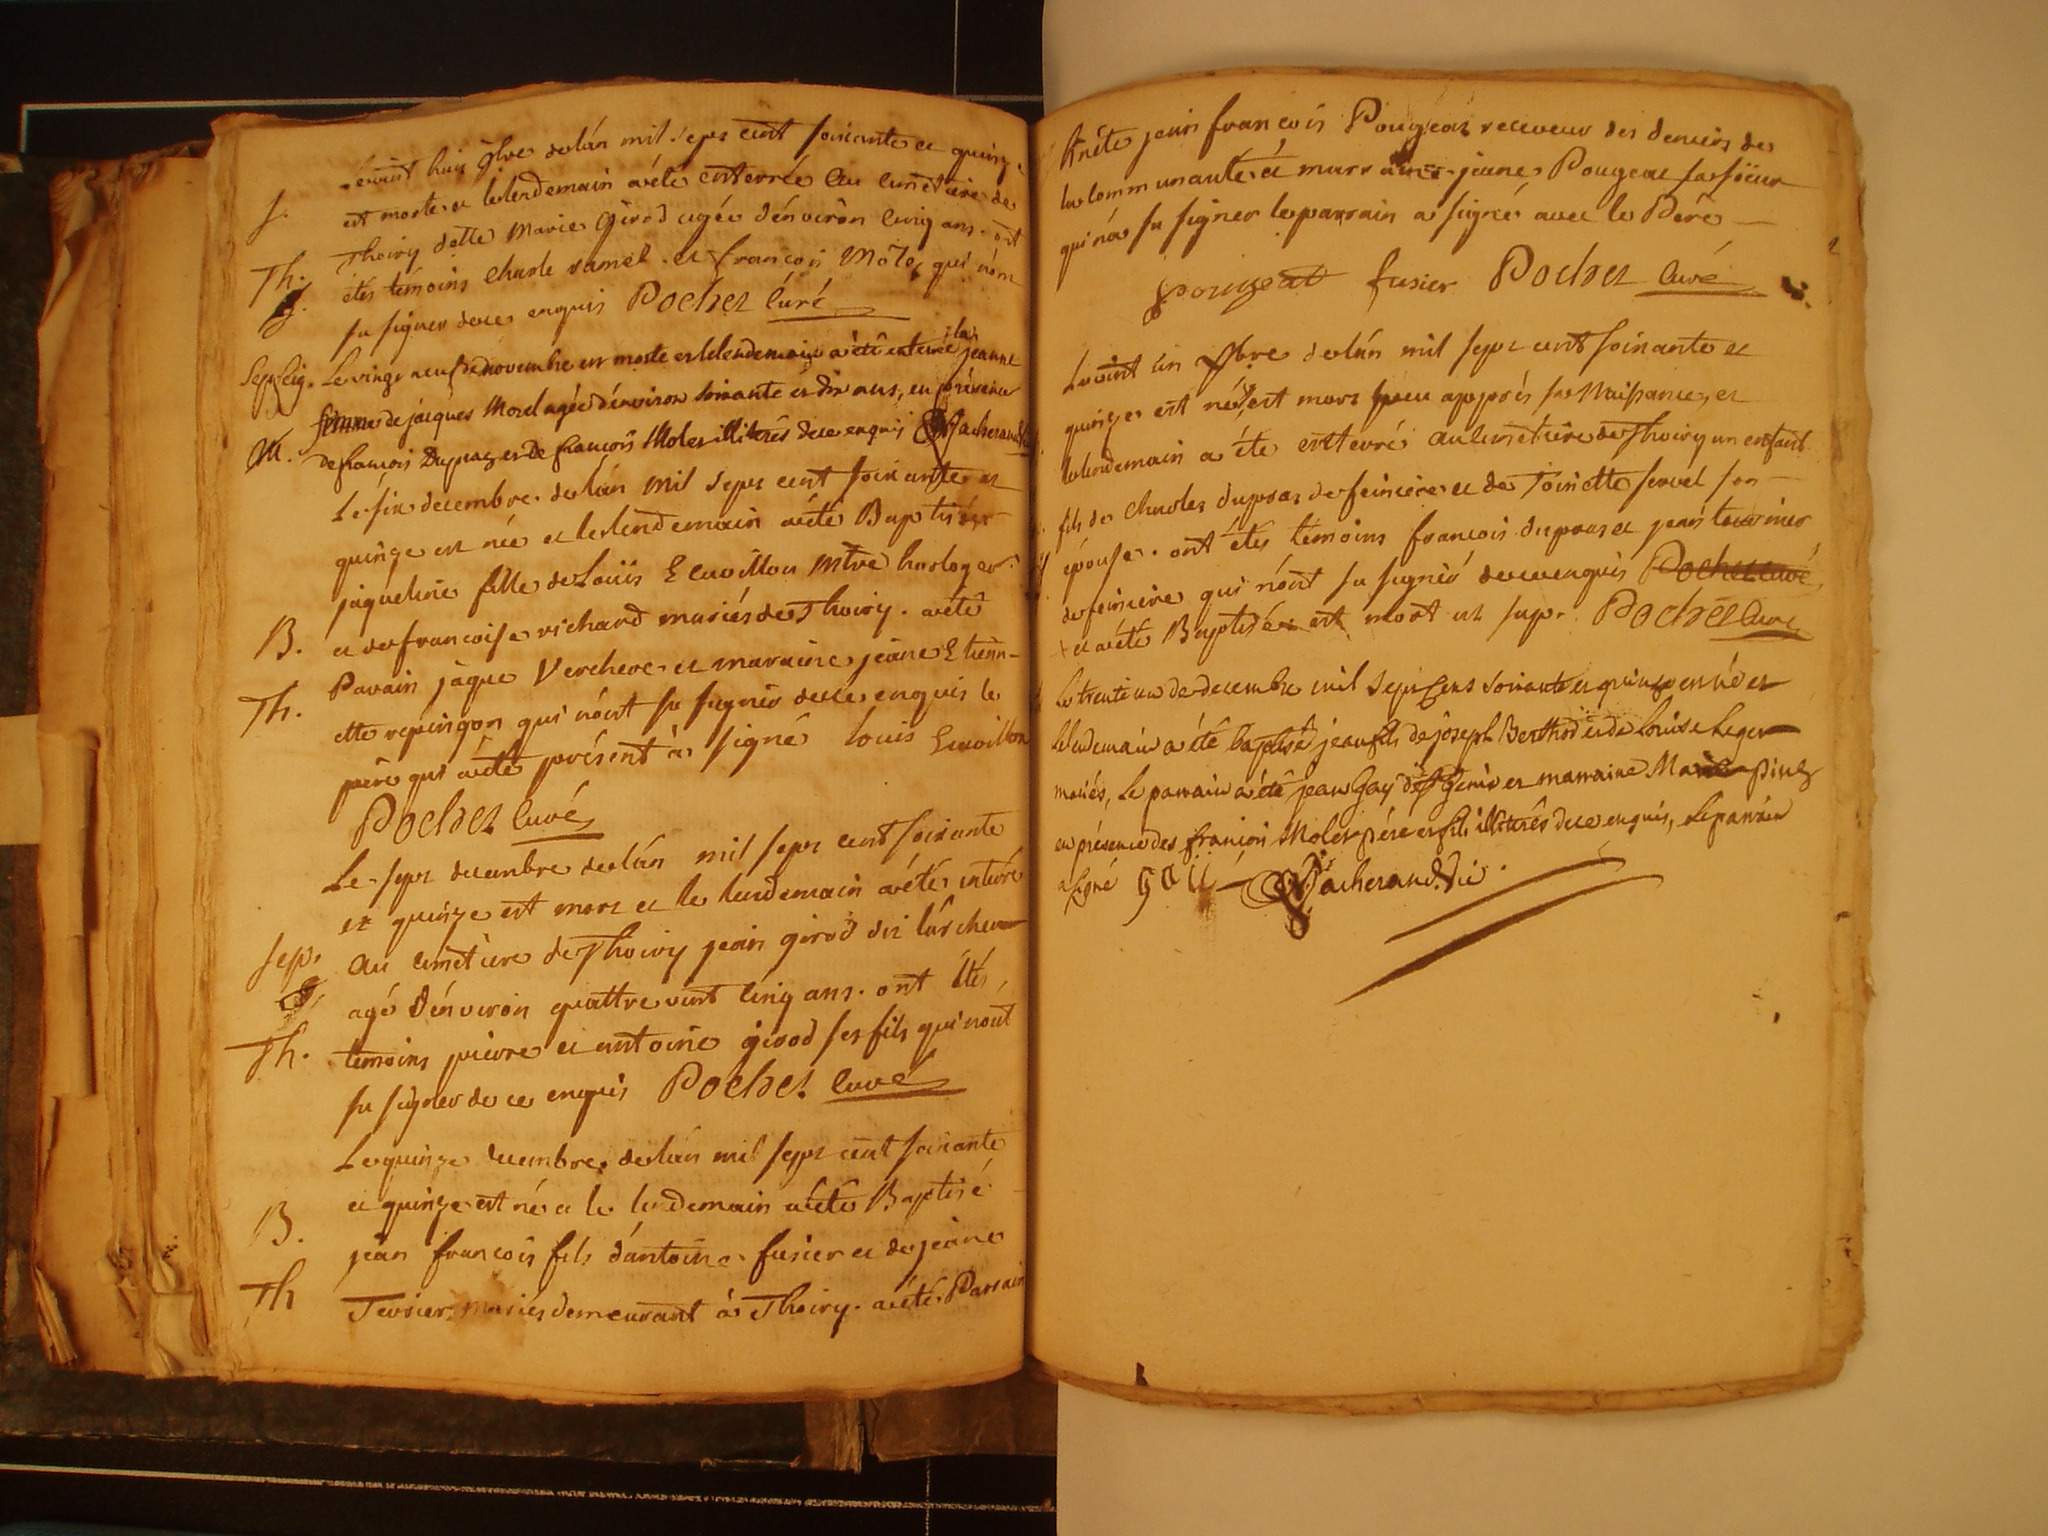 Le vint huit 9bre de lán mil sept cent soixante et quinze
S. est morte et le lendemain a été enterrée au cimetiere de
Th. Thoiry dette Marie Girod agée dénviron cinq ans. ont
étés témoins charle ramel et françois Môle, qui nónt
su signer de ce enquis Pochet Curé
Sep. Le vingt neuf de novembre est morte et le lendemain a été enterrée la jeanne
M. femme de jacques Morel agée dénviron soixante et dix ans, en présence
de françois Dupraz et de françois Molet illiterés de ce enquis Vacherand
Le six decembre de lán mil sept cent soixante et
quinze est née et le lendemain a été Baptisée
jaqueline fille de Loüis Ecuvillon mtre horloger
B. et de francoise richard mariés de Thoiry. a été
Parain jàque Verchere et maraine jeane Etienn-
Th. ette repingon qui nónt su signér de ce enquis le
pére qui a été présent a signé louis Ecuvillon
Pochet Curé
Le sept decembre de lán mil sept cent soixante
et quinze est mort et le lendemain a été enterré
sep. au cimetiere de Thoiry jean girod dit lárcher
agé dénviron quattre vint cinq ans. ont étés,
Th. temoins pierre et antoine girod ses fils qui nont
su signer de ce enquis Pochet Curé
Le quinze decembre de lán mil sept cent soixante
et quinze est né et le lendemain a été Baptisé
B. jean françois fils dántoine fusier et de jeane
Th Tersier mariés demeurant à Thoiry. a été Parrain
hnéte jean françois Pougeat receveur des deniers de
la communauté et marraine jeane Pougeat sa soeur
qui ná su signer le parrain a signé avec le Pére
pougeat fusier Pochet Curé
Le vint un Xbre de lán mil sept cent soixante et
quinze est né, + est mort peu apprés sa Naissance, et
le lendemain a été entterré au cimetiere de Thoiry un enfant
fils de Charles dupraz de feiniere et de Toinette servel son
épouse. ont étés témoins francois dupraz et jean tournier
de feiniere qui nónt su signér de ce enquis Pochet curé
+ et a été Baptisé est mort ut sup. Pochet Curé
Le trente un de decembre mil sept cens soixante et quinze est né et
le lendemain a été baptisé jean fils de joseph Berthod et de Louise Leger
mariés, Le parrain a été jean Gay de St Genix et marraine Marie pinez
en présence des françois Molet pére et fils illiterés de ce enquis, Le parrain
a signé Vacherand vic.